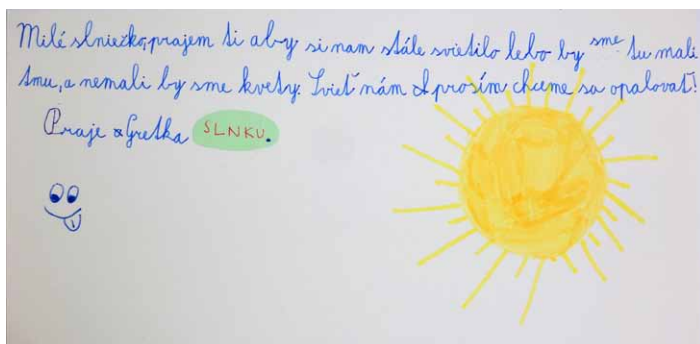 Milé slniečko, prajem ti aby si nam stále svietilo lebo by sme tu mali
tmu, a nemali by sme kvety. Svieť nám prosím chceme sa opalovať!
Praje Gretka SLNKU.